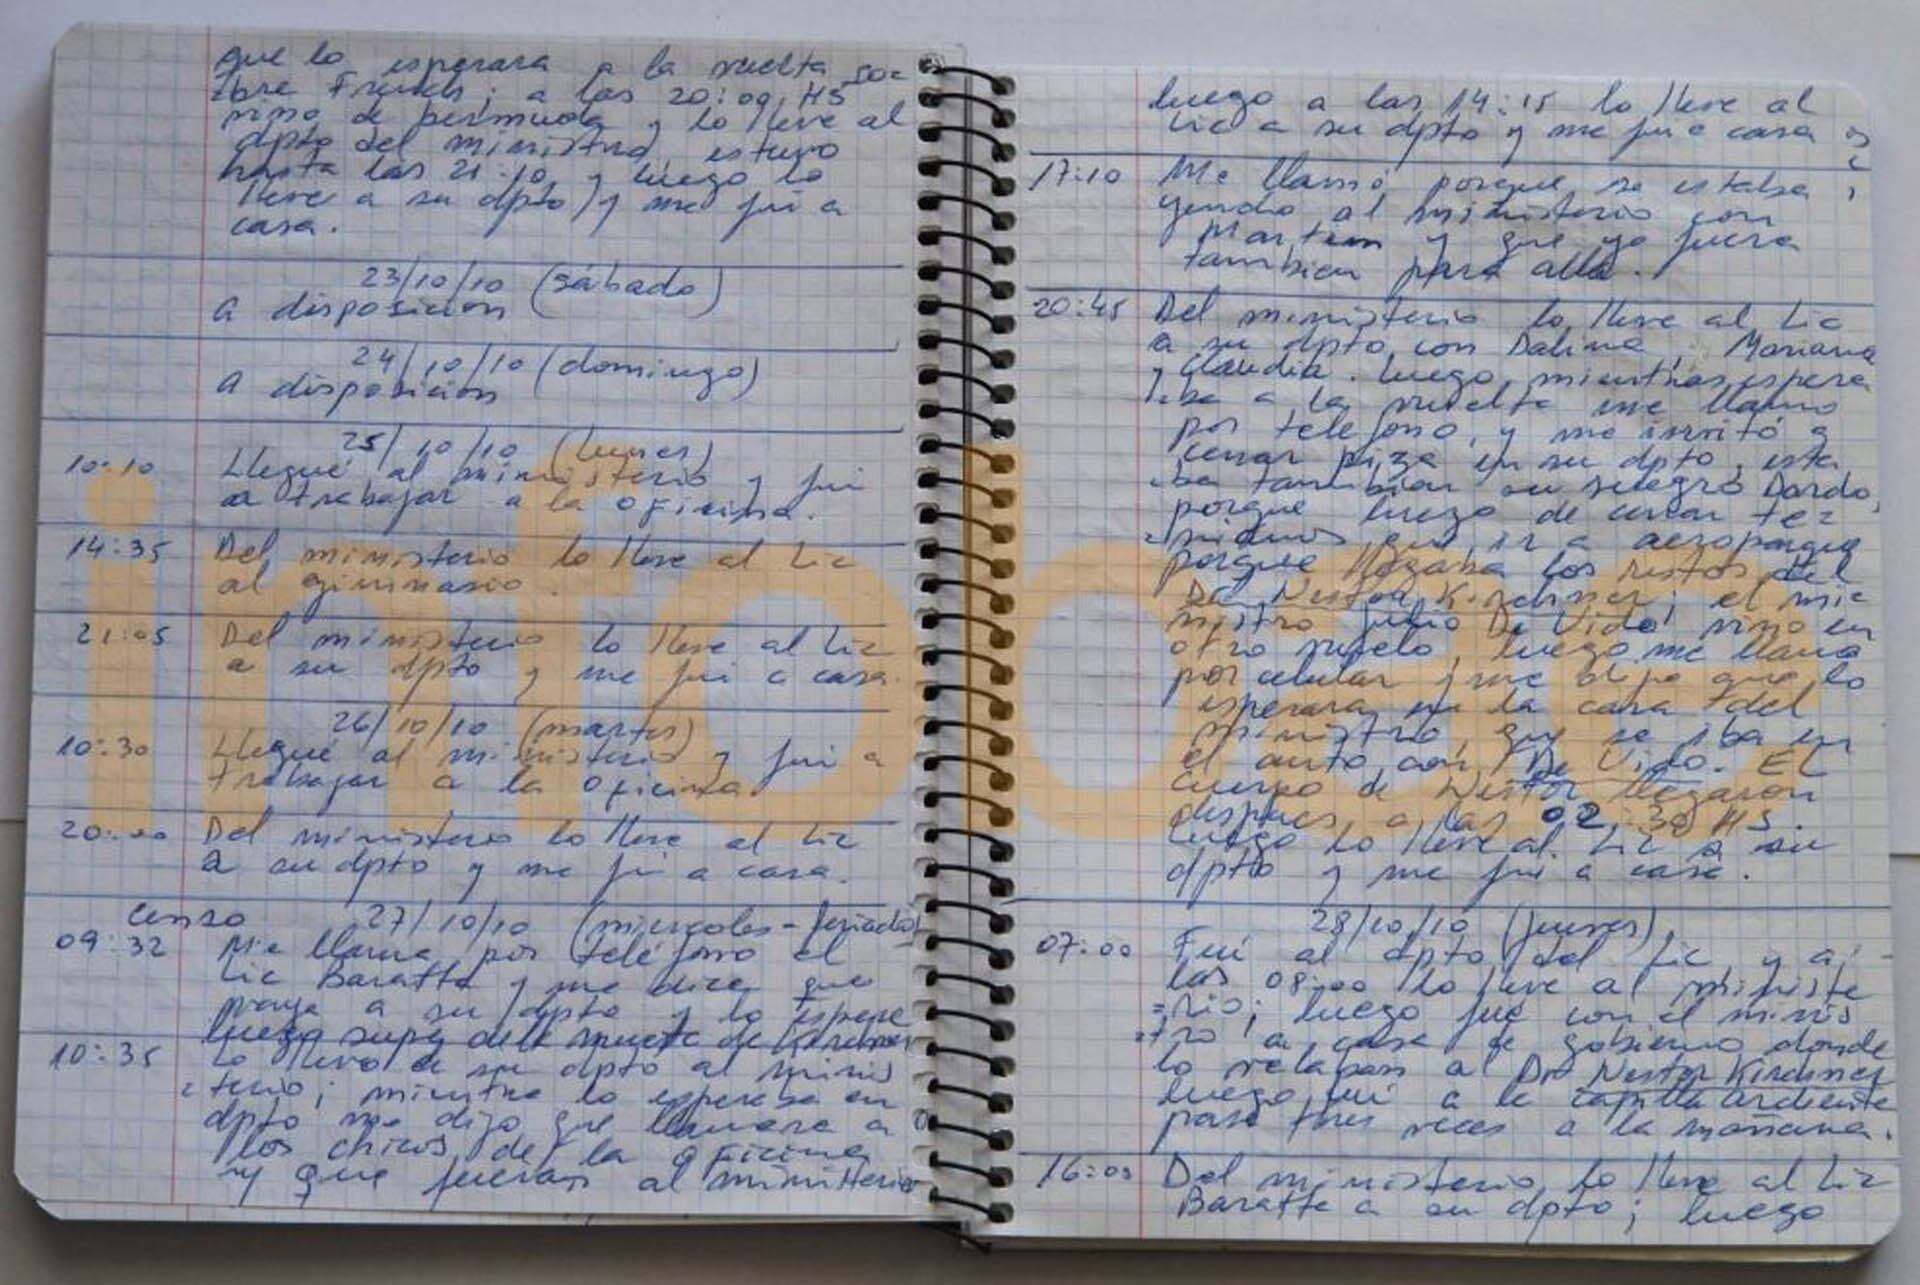 que lo esperara a la vuelta so=
bre French; a las 20:09 HS
vino de bermuda y lo lleve al
dpto del ministro, estuvo
hasta las 21:10 y luego lo
lleve a su dpto y me fui a
casa.
23/10/10 (sábado)
a disposicion
24/10/10 (domingo)
a disposicion
25/10/10 (lunes)
10:10 Llegué al ministerio y fui
a trabajar a la oficina.
14:35 Del ministerio lo lleve al Lic
al gimnasio.
21:05 Del ministerio lo lleve al Lic
a su dpto y me fui a casa.
26/10/10 (martes)
10:30 Llegué al ministerio y fui a
trabajar a la oficina.
20:00 Del ministerio lo lleve al Lic
a su dpto y me fui a casa.
censo 27/10/10 (miercoles - feriado)
09:32 Me llama por teléfono el
Lic Baratta y me dice que
vaya a su dpto y lo espere
luego supe del muerte de Kirchner
10:35 Lo llevo de su dpto al minis
=terio; mientra lo esperaba en
dpto me dijo que llamara a
los chicos de la oficina
y que fueran al ministerio
luego a las 14:15 lo lleve al
Lic a su dpto y me fui a casa
17:10 Me llamó porque se estaba
yendo al ministerio con
Martin y que yo fuera
tambien para alla.
20:45 Del ministerio lo lleve al Lic
a su dpto con Dalina, Mariana
y Claudia. Luego, mientras espera
=ba a la vuelta me llamo
por telefono, y me invitó a
cenar piza en su dpto, esta
=ba tambien su suegro Dardo,
porque luego de cenar te=
=niamos que ir a aeroparque
porque llegaba los restos del
Dr. Nestor Kirchner; el mi=
nistro Julio De Vido vino en
otro vuelo, luego me llama
por celular y me dijo que lo
esperara en la casa del
ministro, que se iba en
el auto con De Vido. EL
cuerpo de Nestor llegaron
despues a las 02:30 HS.
Luego lo lleve al Lic a su
dpto y me fui a casa.
28/10/10 (jueves)
07:00 Fui al dpto del Lic y a
las 08:00 lo lleve al ministe
=rio; luego fue con el minis
=tro a casa de gobierno donde
lo velaban al Dr Nestor Kirchner
luego fui a la capilla ardiente
pasé tres veces a la mañana.
16:05 Del ministerio lo lleve al Lic
Baratta a su dpto; luego
infobae